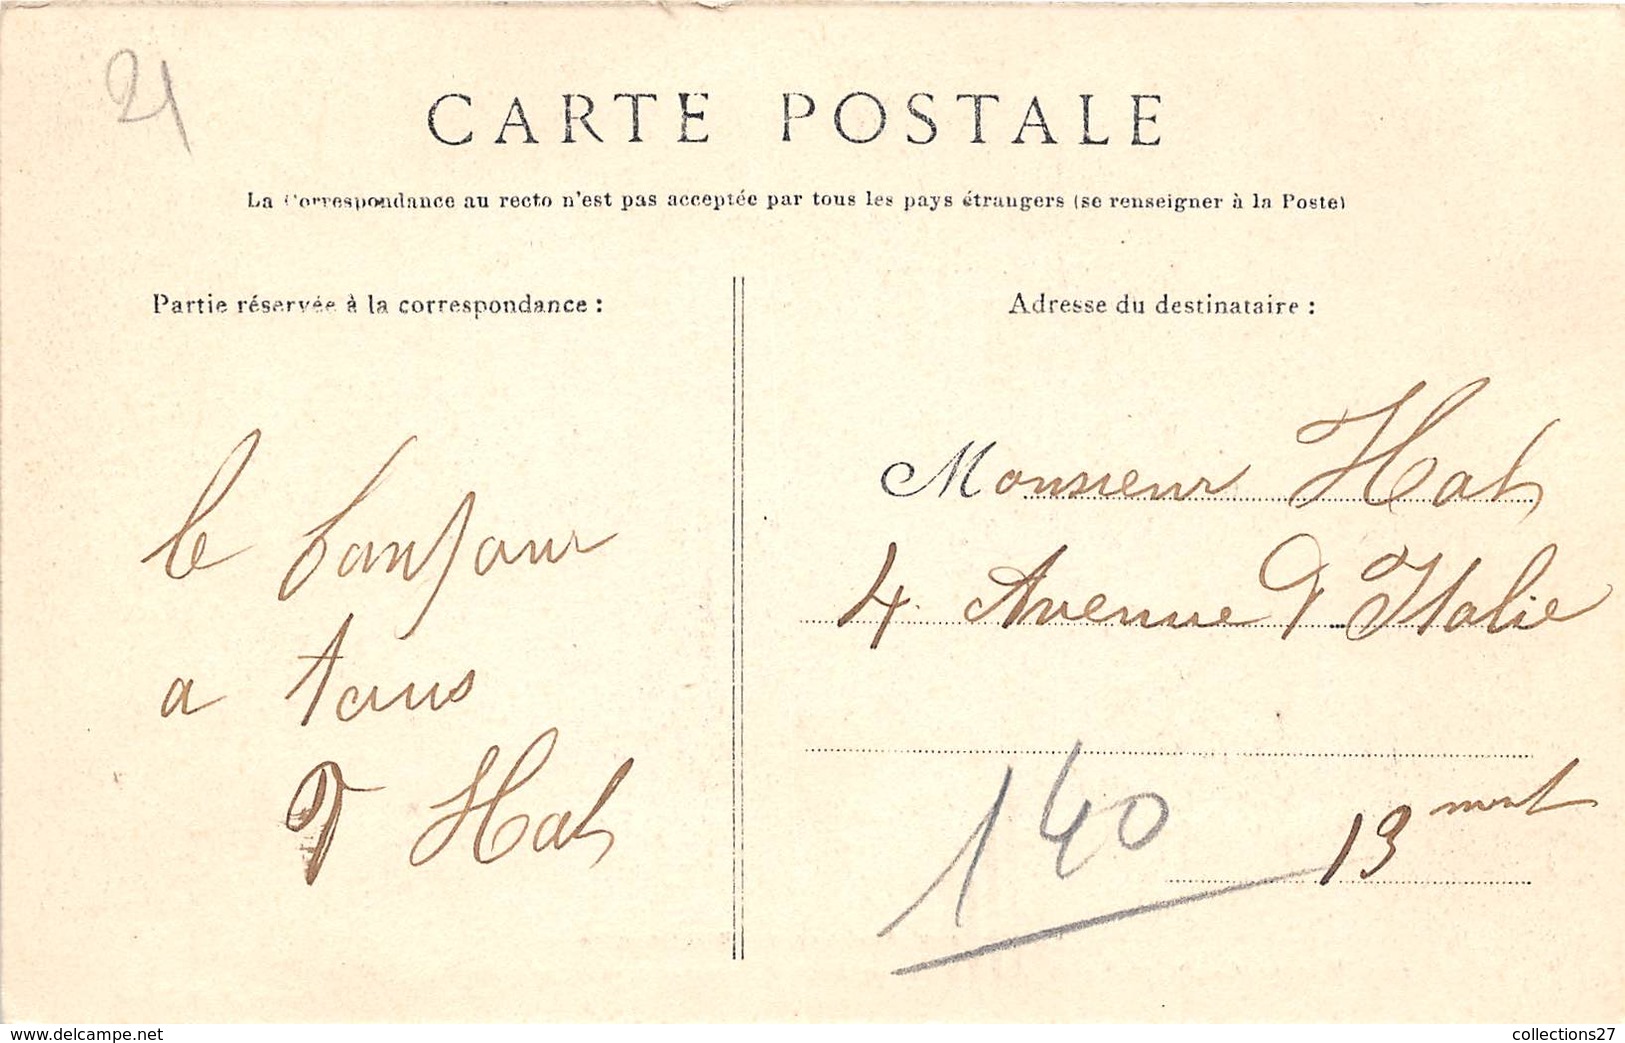 21
CARTE POSTALE
La Correspondance au recto n'est pas acceptée par tous les pays étrangers (se renseigner à la Poste)
Partie réservée à la correspondance :
le bonjour
a tous
D Hab
Adresse du destinataire :
Monsieur Hab
4 Avenue D'Italie
140
13
www.delcampe.net
collections27